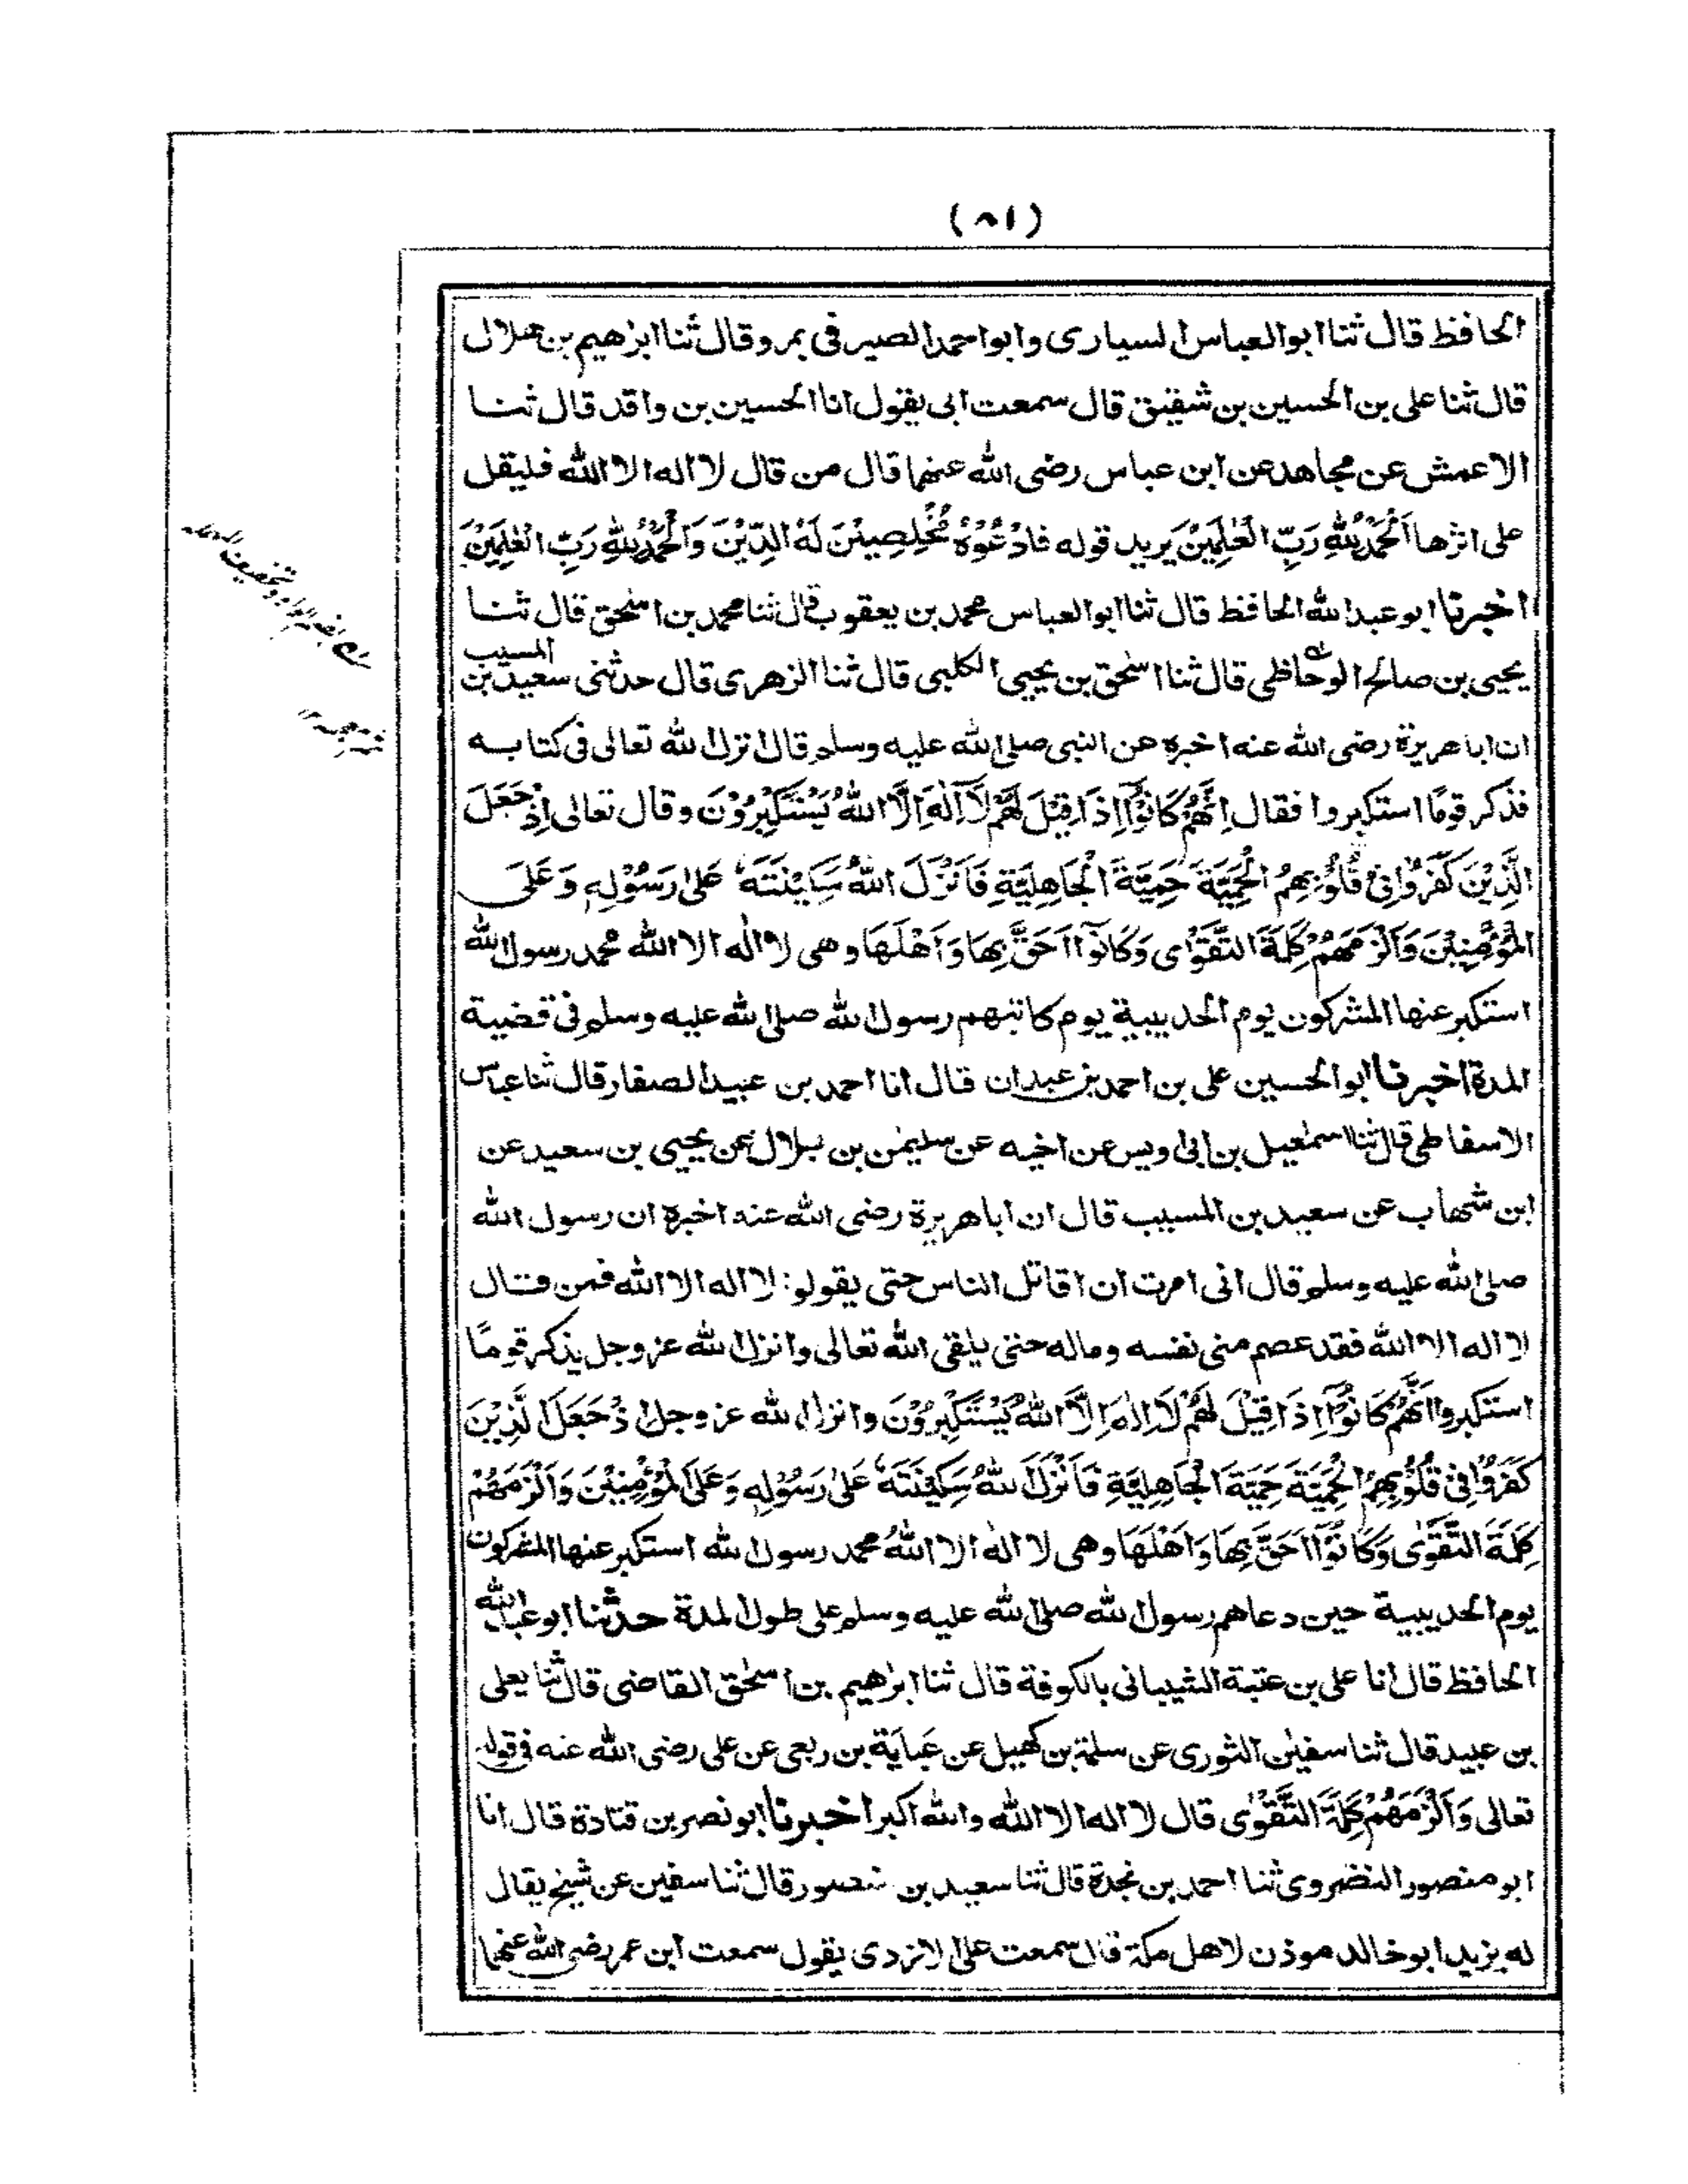 (٨١)
الحافظ قال ثنا ابوالعباس السياری وابواحمد الصیرفی بمرو قال ثنا ابرٰهیم بن هلال
قال ثنا علی بن الحسین بن شقیق قال سمعت ابی یقول انا الحسین بن واقد قال ثنا
الاعمش عن مجاهد عن ابن عباس رضی الله عنهما قال من قال لا اله الا الله فلیقل
علی اثرها اَلْحَمْدُ لِلّٰهِ رَبِّ الْعٰلَمِیْنَ یرید قوله فَادْعُوْهُ مُخْلِصِیْنَ لَهُ الدِّیْنَ وَالْحَمْدُ لِلّٰهِ رَبِّ الْعٰلَمِیْنَ
اخبرنا ابو عبد الله الحافظ قال ثنا ابوالعباس محمد بن یعقوب قال ثنا محمد بن اسحٰق قال ثنا
یحیی بن صالح الوحاظی قال ثنا اسحٰق بن یحیی الکلبی قال ثنا الزهری قال حدثنی سعید بن المسیب
ان ابا هریرة رضی الله عنه اخبره عن النبی صلی الله علیه وسلم قال انزل الله تعالی فی کتابه
فذکر قومًا استکبروا فقال اِنَّهُمْ کَانُوْۤا اِذَا قِیْلَ لَهُمْ لَاۤ اِلٰهَ اِلَّا اللهُ یَسْتَکْبِرُوْنَ وقال تعالی اِذْ جَعَلَ
الَّذِیْنَ کَفَرُوْا فِیْ قُلُوْبِهِمُ الْحَمِیَّةَ حَمِیَّةَ الْجَاهِلِیَّةِ فَاَنْزَلَ اللهُ سَکِیْنَتَهٗ عَلٰی رَسُوْلِهٖ وَعَلَی
الْمُؤْمِنِیْنَ وَاَلْزَمَهُمْ کَلِمَةَ التَّقْوٰی وَکَانُوْۤا اَحَقَّ بِهَا وَاَهْلَهَا وهی لا اله الا الله محمد رسول الله
استکبر عنها المشرکون یوم الحدیبیة یوم کاتبهم رسول الله صلی الله علیه وسلم فی قضیة
المدة اخبرنا ابو الحسین علی بن احمد بن عبدان قال انا احمد بن عبید الصفار قال ثنا عباس
الاسفاطی قال ثنا اسمٰعیل بن ابی اویس عن اخیه عن سلیمٰن بن بلال عن یحیی بن سعید عن
ابن شهاب عن سعید بن المسیب قال ان ابا هریرة رضی الله عنه اخبره ان رسول الله
صلی الله علیه وسلم قال انی امرت ان اقاتل الناس حتی یقولوا لا اله الا الله فمن قال
لا اله الا الله فقد عصم منی نفسه وماله حتی یلقی الله تعالی وانزل الله عز وجل یذکر قومًا
استکبروا اِنَّهُمْ کَانُوْۤا اِذَا قِیْلَ لَهُمْ لَاۤ اِلٰهَ اِلَّا اللهُ یَسْتَکْبِرُوْنَ وانزل الله عز وجل اِذْ جَعَلَ الَّذِیْنَ
کَفَرُوْا فِیْ قُلُوْبِهِمُ الْحَمِیَّةَ حَمِیَّةَ الْجَاهِلِیَّةِ فَاَنْزَلَ اللهُ سَکِیْنَتَهٗ عَلٰی رَسُوْلِهٖ وَعَلَی الْمُؤْمِنِیْنَ وَاَلْزَمَهُمْ
کَلِمَةَ التَّقْوٰی وَکَانُوْۤا اَحَقَّ بِهَا وَاَهْلَهَا وهی لا اله الا اللهُ محمد رسول الله استکبر عنها المشرکون
یوم الحدیبیة حین دعاهم رسول الله صلی الله علیه وسلم علی طول المدة حدثنا ابو عبدالله
الحافظ قال انا علی بن عتبة الشیبانی بالکوفة قال ثنا ابرٰهیم بن اسحٰق القاضی قال ثنا یعلی
بن عبید قال ثنا سفیٰن الثوری عن سلمة بن کهیل عن عَبایَة بن ربعی عن علی رضی الله عنه فی قوله
تعالی وَاَلْزَمَهُمْ کَلِمَةَ التَّقْوٰی قال لا اله الا الله والله اکبر اخبرنا ابو نصر بن قتادة قال انا
ابو منصور النضروی ثنا احمد بن نجدة قال ثنا سعید بن منصور قال ثنا سفین عن شیخ یقال
له یزید ابو خالد موذن لاهل مکة قال سمعت علی الازدی یقول سمعت ابن عمر رضی الله عنهما